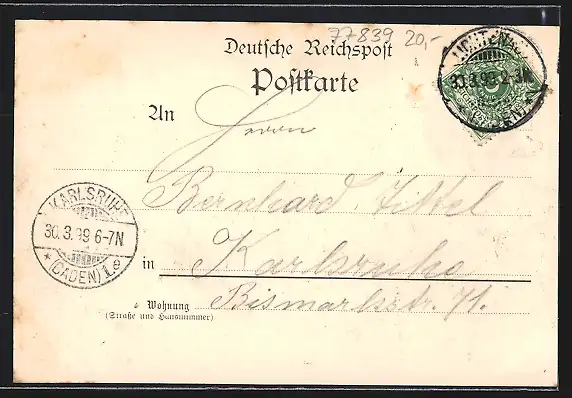 77839 20,-
Deutsche Reichspost
Postkarte
An Herrn
Bernhard Zittel
in Karlsruhe
Wohnung Bismarkstr. 71.
(Straße und Hausnummer)
KARLSRUHE
30.3.99 6-7N
* (BADEN) 1.e
30.3.99 2-3N